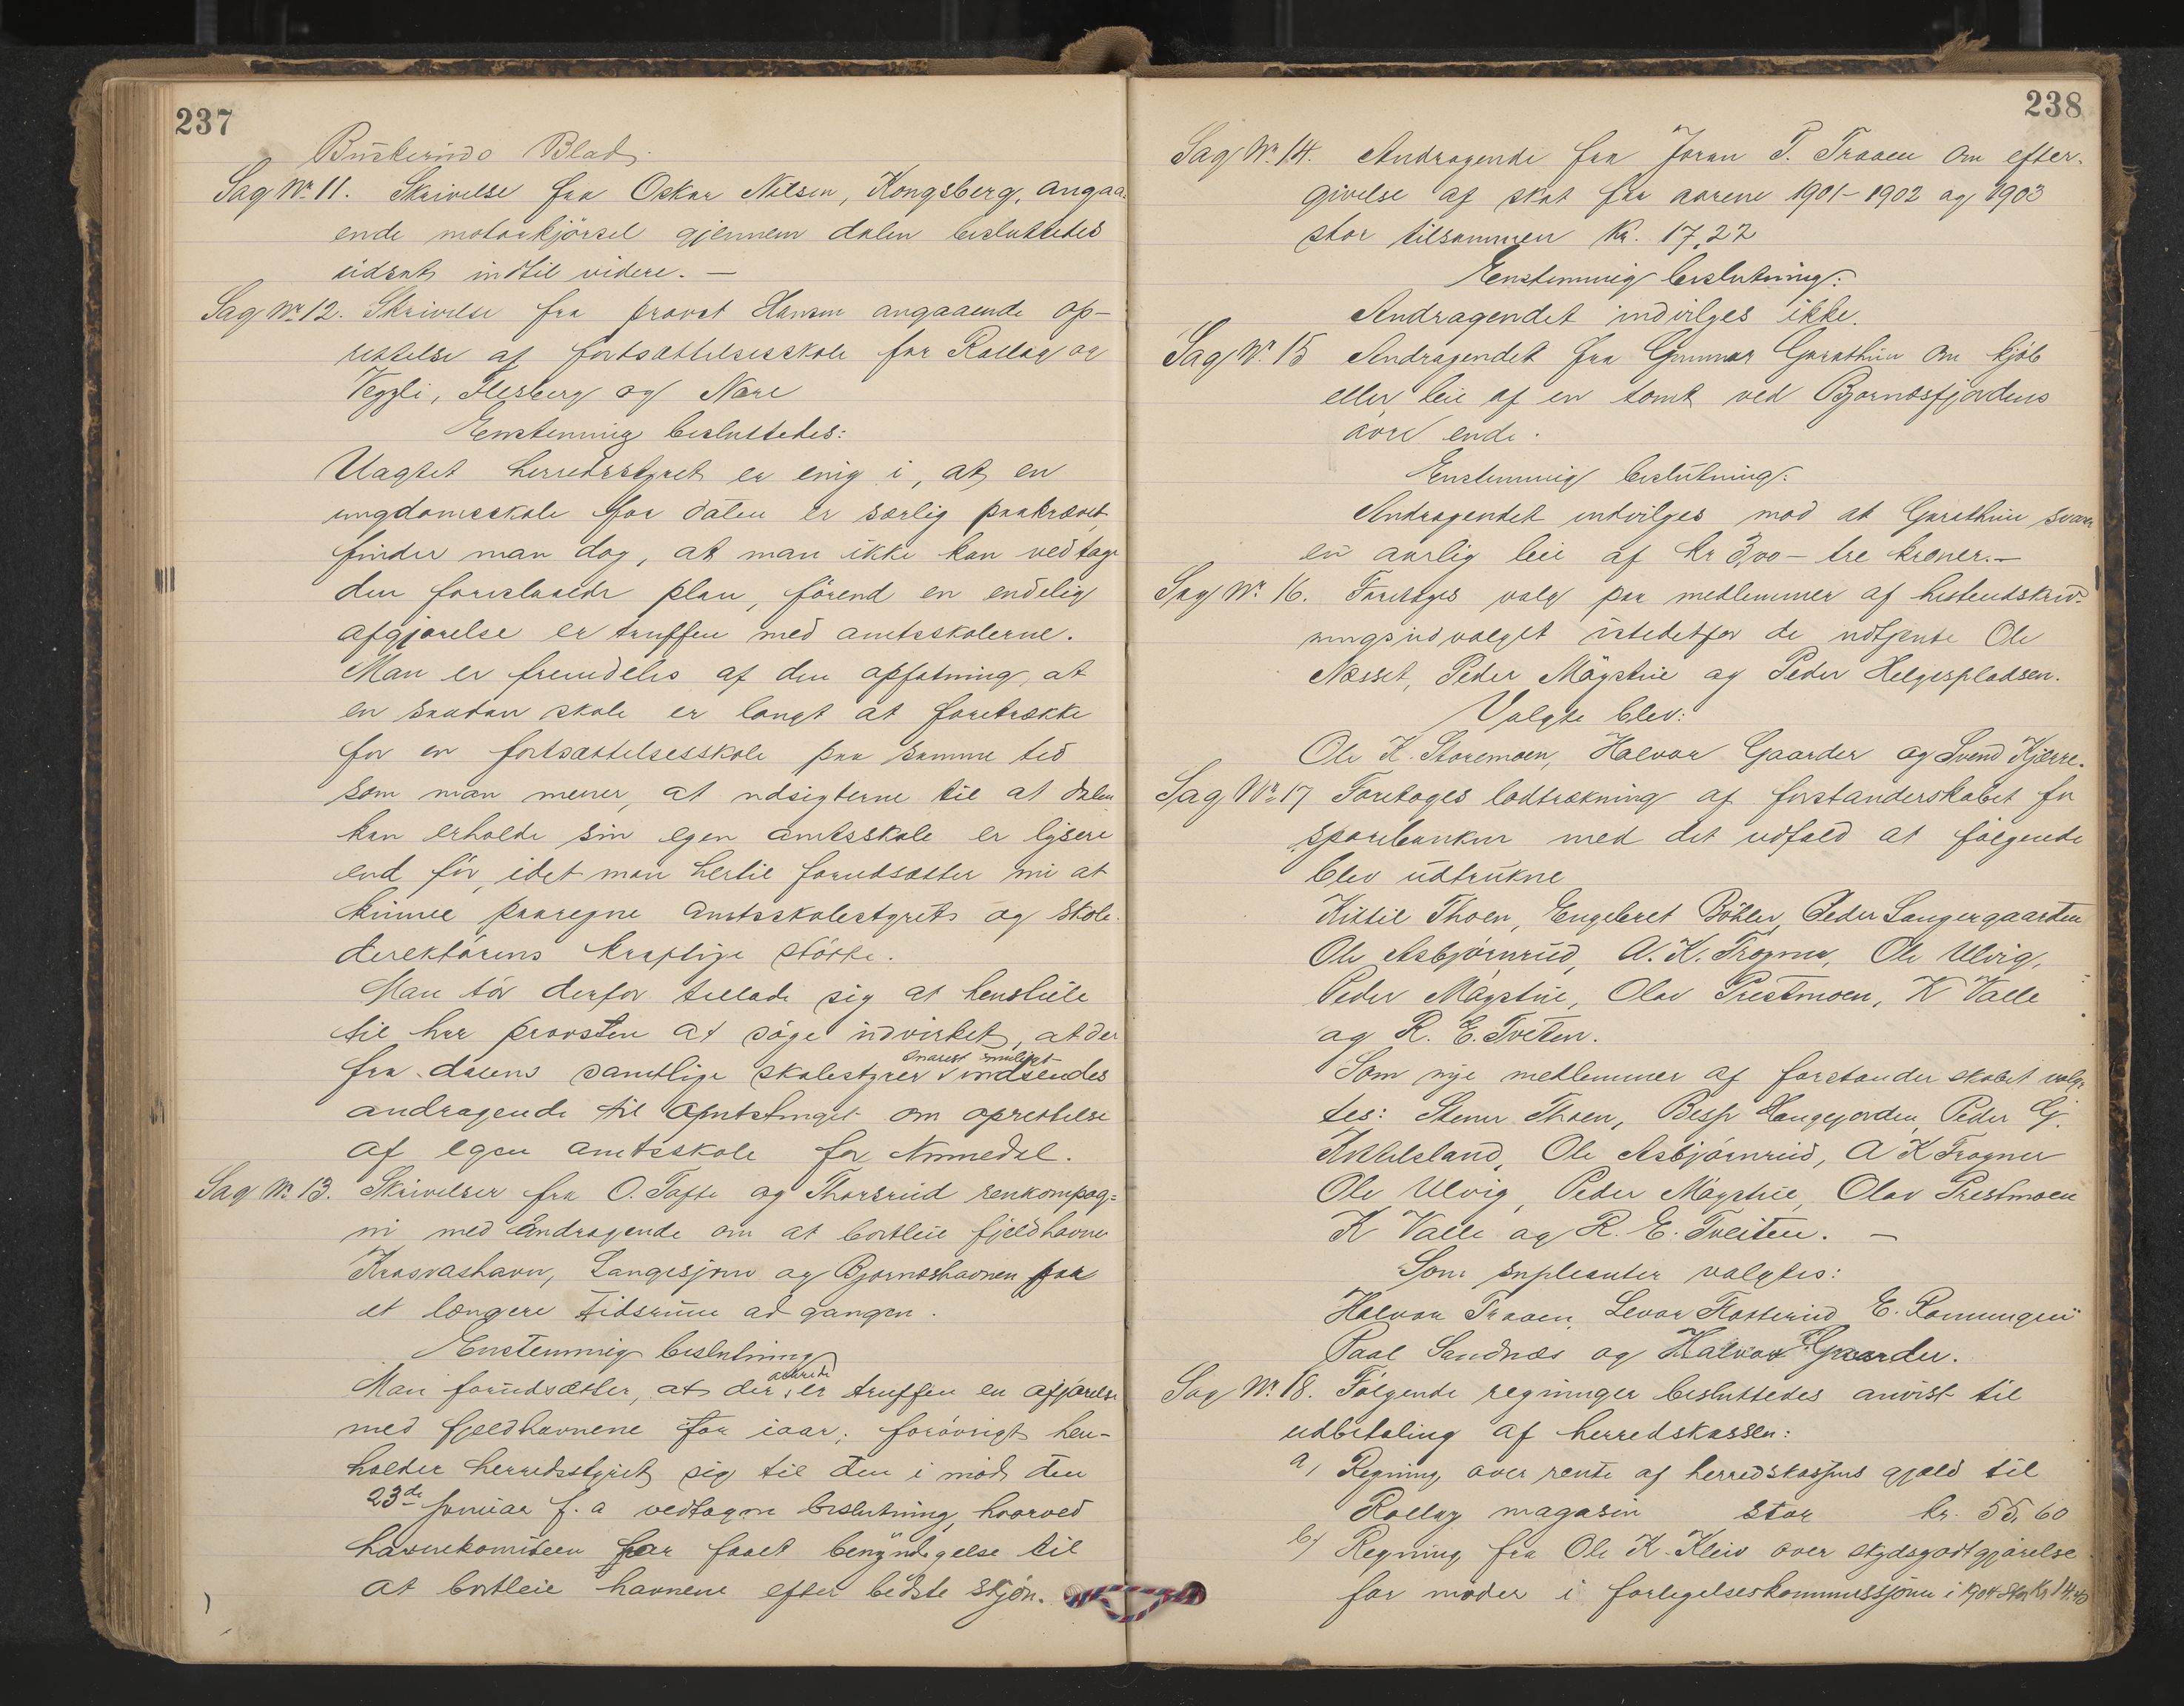 237
Buskeruds Blad.
Sag Nr. 11. Skrivelse fra Oskar Nilsen, Kongsberg, angaa-
ende motorkjörsel gjennem dalen besluttedes
udsat indtil videre. —
Sag Nr. 12. Skrivelse fra provst Hansen angaaende op-
rettelse af fortsættelsesskole for Rollag og
Veggli, Flesberg og Nore
Enstemmig besluttedes:
Uagtet herredsstyret er enig i, at en
ungdomsskole for dalen er særlig paakrævet,
finder man dog, at man ikke kan vedtage
den foreslaaede plan, förend en endelig
afgjørelse er truffen med amtsskolerne.
Man er fremdeles af den opfatning, at
en saadan skole er langt at foretrække
for en fortsættelsesskole paa samme tid
som man mener, at udsigterne til at dalen
kan erholde sin egen amtsskole er lysere
end för, idet man hertil forudsætter mi at
kunne paaregne amtsskolestyrets og skole-
direktörens kraftige stötte.
Man tör derfor tillade sig at henstille
til hrr provsten at söge udvirket, at der
fra dalens samtlige skolestyrer v snarest muligt indsendes
andragende til Amtstinget om oprettelse
af egen amtsskole for Numedal.
Sag Nr. 13. Skrivelser fra O. Tafte og Thorsrud renkompag-
ni med andragende om at bortleie fjeldhavne
Krasvashavn, Langesjøen og Bjornshavnen paa
et længere tidsrum ad gangen.
Enstemmig beslutning
Man forudsætter, at der allerede er truffen en afgjørelse
med fjeldhavnene for iaar; forövrigt hen-
holder herredsstyret sig til den i möde den
23de januar f. a vedtagne beslutning, hvorved
havnekomiteen har faaet bemyndigelse til
at bortleie havnene efter bedste skjön.
238
Sag Nr. 14. Andragende fra Joran P. Traaen om efter-
givelse af skat for aarene 1901 – 1902 og 1903
stor tilsammen Kr. 17,22
Enstemmig beslutning:
Andragendet indvilges ikke.
Sag Nr. 15 Andragendet fra Gunnar Garathun om kjöb
eller leie af en tomt ved Bjornosfjordens
övre ende.
Enstemmig beslutning:
Andragendet indvilges mod at Garathun svarer
en aarlig leie af kr 3,00 – tre kroner. —
Sag Nr. 16. Foretoges valg paa medlemmer af hesteudskriv-
ningsudvalget istedetfor de udtjente Ole
Næsset, Peder Mögstue og Peder Helgespladsen.
Valgte blev:
Ole K. Storemoen, Halvor Gaarder og Svend Kjærre.
Sag Nr. 17 Foretoges lodtrækning af forstanderskabet for
sparebanken med det udfald at fölgende
blev udtrukne
Kittil Thoen, Engebret Böhler, Peder Langergaarden
Ole Asbjörnrud, A. K. Trogner, Ole Ulvig,
Peder Mögstue, Olav Prestmoen, K Valle
og R. E. Tveten.
Som nye medlemmer af forstanderskabet valg-
tes: Stener Thoen, Besp Haugejorden, Peder Gj.
Kittilsland, Ole Asbjörnrud, A K Trogner
Ole Ulvig, Peder Mögstue, Olav Prestmoen
K Valle og R. E. Tveiten. —
Som supleanter valgtes:
Halvor Traaen, Levor Flatterud, E.
Paal Sandnæs og Halvor Gaarder.
Sag Nr. 18. Fölgende regninger besluttedes anvist til
udbetaling af herredskassen:
a, Regning over rente af herredskassens gjæld til
Rollag magasin stor kr. 55,60
b) Regning fra Ole K. Kleiv over skydsgodtgjörelse
for möder i forligelseskommissjonen i 1904 stor Kr 14,40